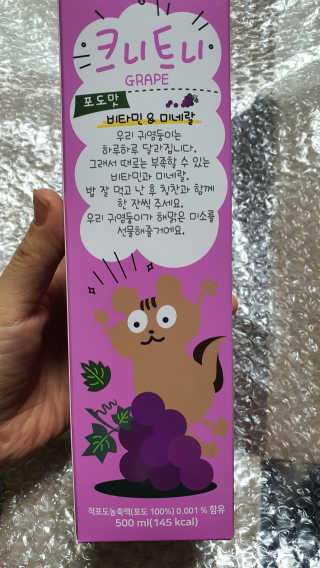 크니트니
GRAPE
포도맛
비타민 & 미네랄
우리 귀염둥이는
하루하루 달라집니다.
그래서 때로는 부족할 수 있는
비타민과 미네랄.
밥 잘 먹고 난 후 칭찬과 함께
한 잔씩 주세요.
우리 귀염둥이가 해맑은 미소를
선물해줄거에요.
적포도농축액(포도 100%) 0.001 % 함유
500 ml(145 kcal)